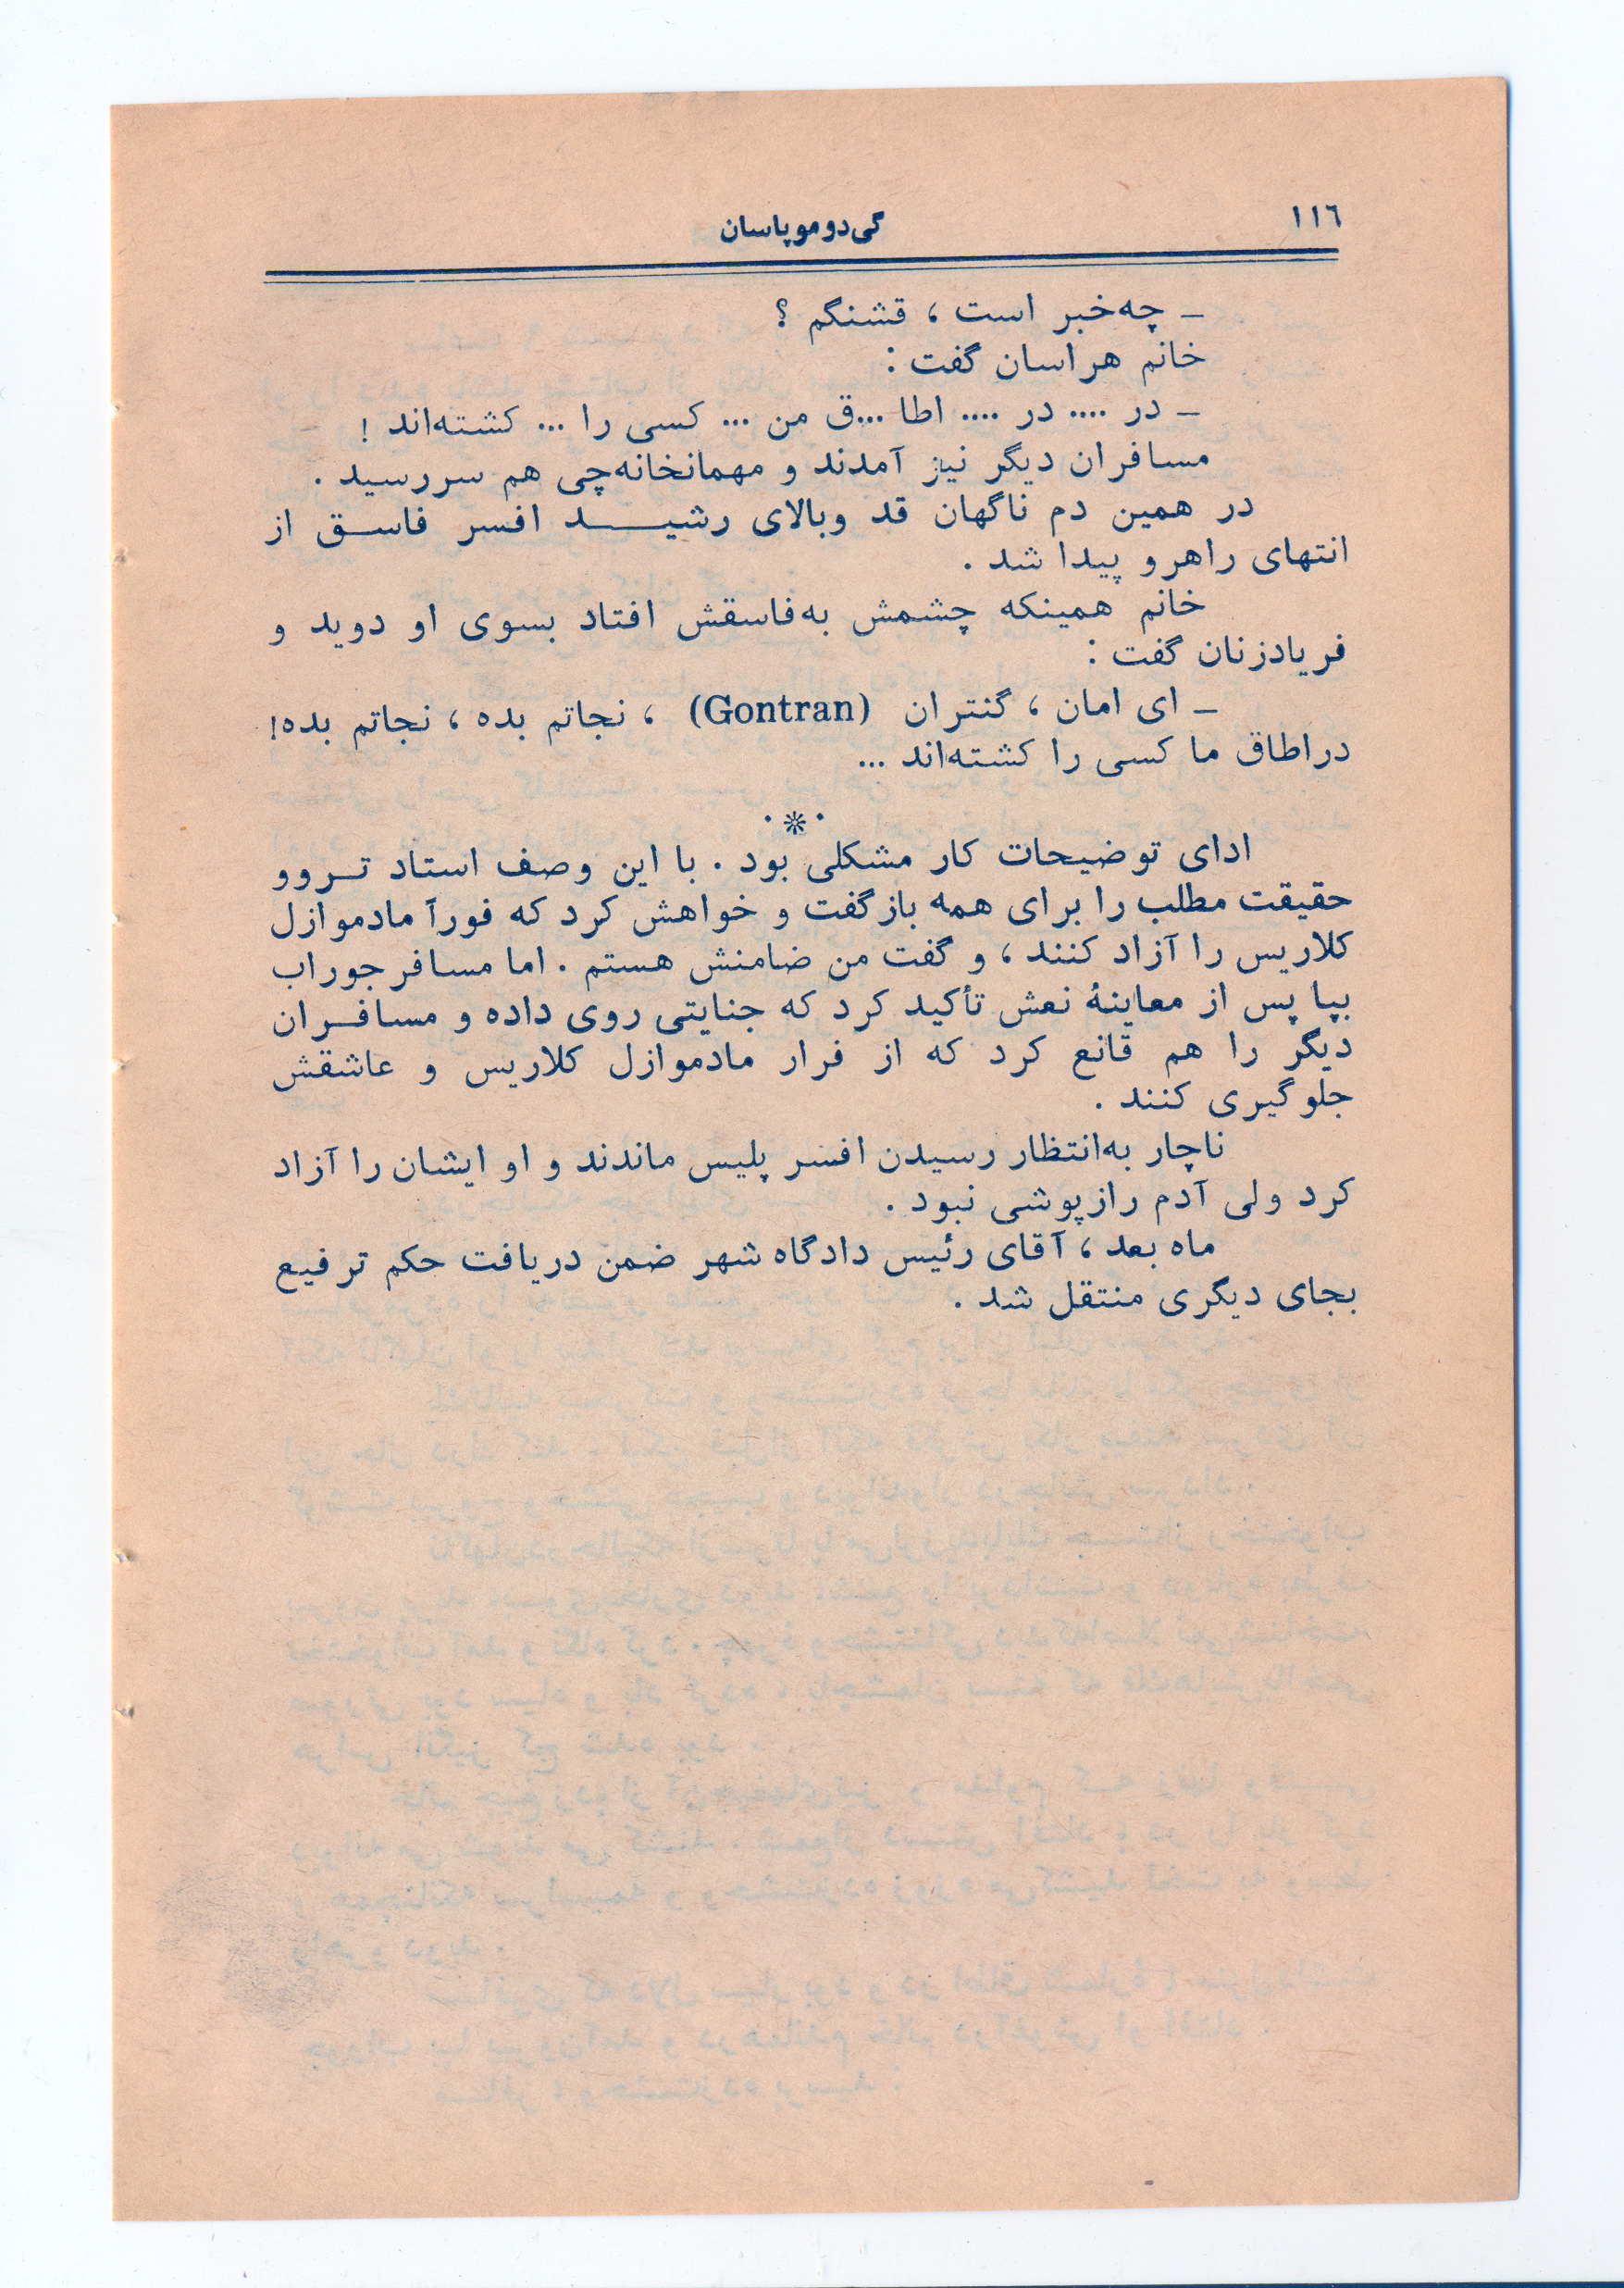 ١١٦
گی‌دوموپاسان
ـ چه‌خبر است ، قشنگم ؟
خانم هراسان گفت :
ـ در .... در .... اطا ...ق من ... کسی را ... کشته‌اند !
مسافران دیگر نیز آمدند و مهمانخانه‌چی هم سررسید .
در همین دم ناگهان قد وبالای رشید افسر فاسق از
انتهای راهرو پیدا شد .
خانم همینکه چشمش به‌فاسقش افتاد بسوی او دوید و
فریادزنان گفت :
ـ ای امان ، گنتران (Gontran) ، نجاتم بده ، نجاتم بده!
دراطاق ما کسی را کشته‌اند ...
٠※٠
ادای توضیحات کار مشکلی بود . با این وصف استاد تروو
حقیقت مطلب را برای همه بازگفت و خواهش کرد که فورآ مادموازل
کلاریس را آزاد کنند ، و گفت من ضامنش هستم . اما مسافر جوراب
بپا پس از معاینهٔ نعش تأکید کرد که جنایتی روی داده و مسافران
دیگر را هم قانع کرد که از فرار مادموازل کلاریس و عاشقش
جلوگیری کنند .
ناچار به‌انتظار رسیدن افسر پلیس ماندند و او ایشان را آزاد
کرد ولی آدم رازپوشی نبود .
ماه بعد ، آقای رئیس دادگاه شهر ضمن دریافت حکم ترفیع
بجای دیگری منتقل شد .